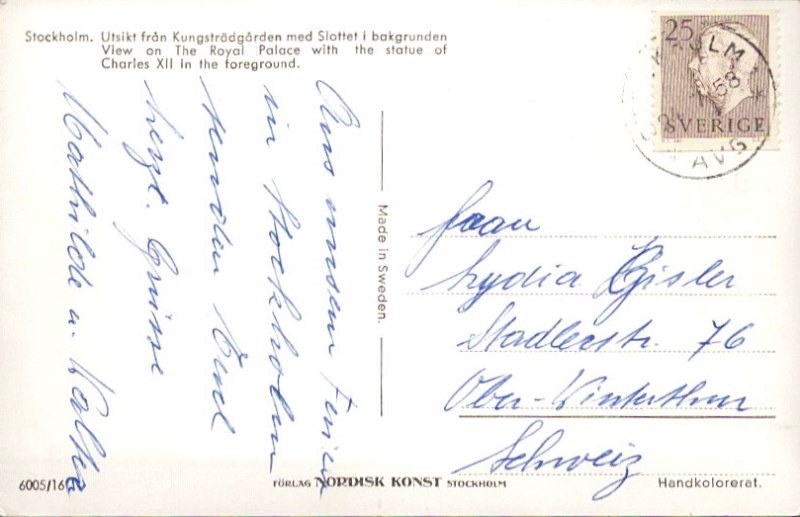 Stockholm. Utsikt från Kungsträdgården med Slottet i bakgrunden
View on The Royal Palace with the statue of
Charles XII in the foreground.
Aus unsern Ferien
in Stockholm
senden Euch
herzl. Grüsse
Mathilde u. Walter
Made in Sweden.
25
SVERIGE
58
AVG
Frau
Lydia Gisler
Stadlerstr. 76
Ober-Winterthur
Schweiz
6005/16
FÖRLAG NORDISK KONST STOCKHOLM
Handkolorerat.